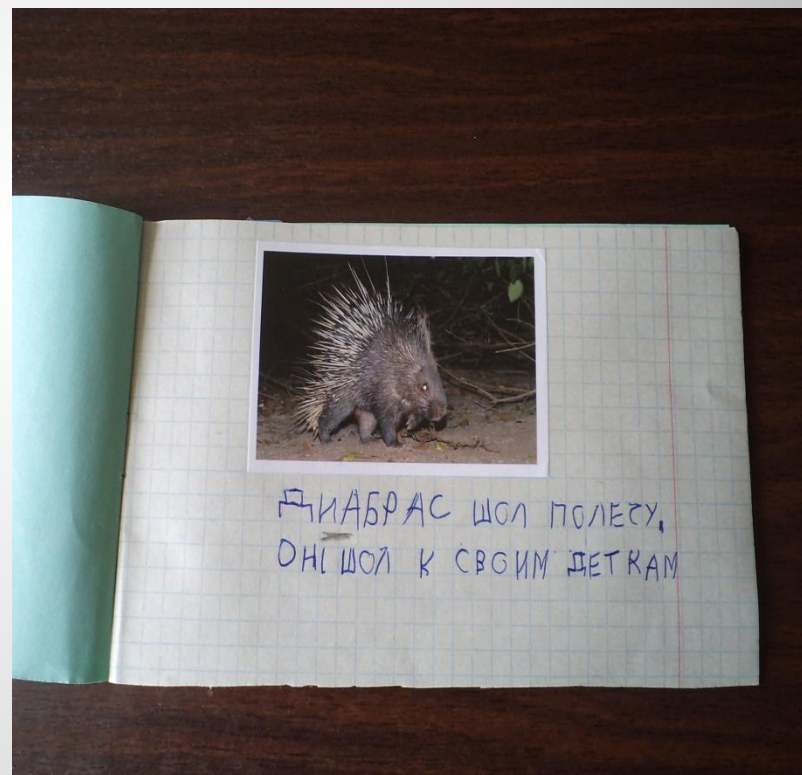 ДИАБРАС ШОЛ ПОЛЕСУ,
ОН ШОЛ К СВОИМ ДЕТКАМ